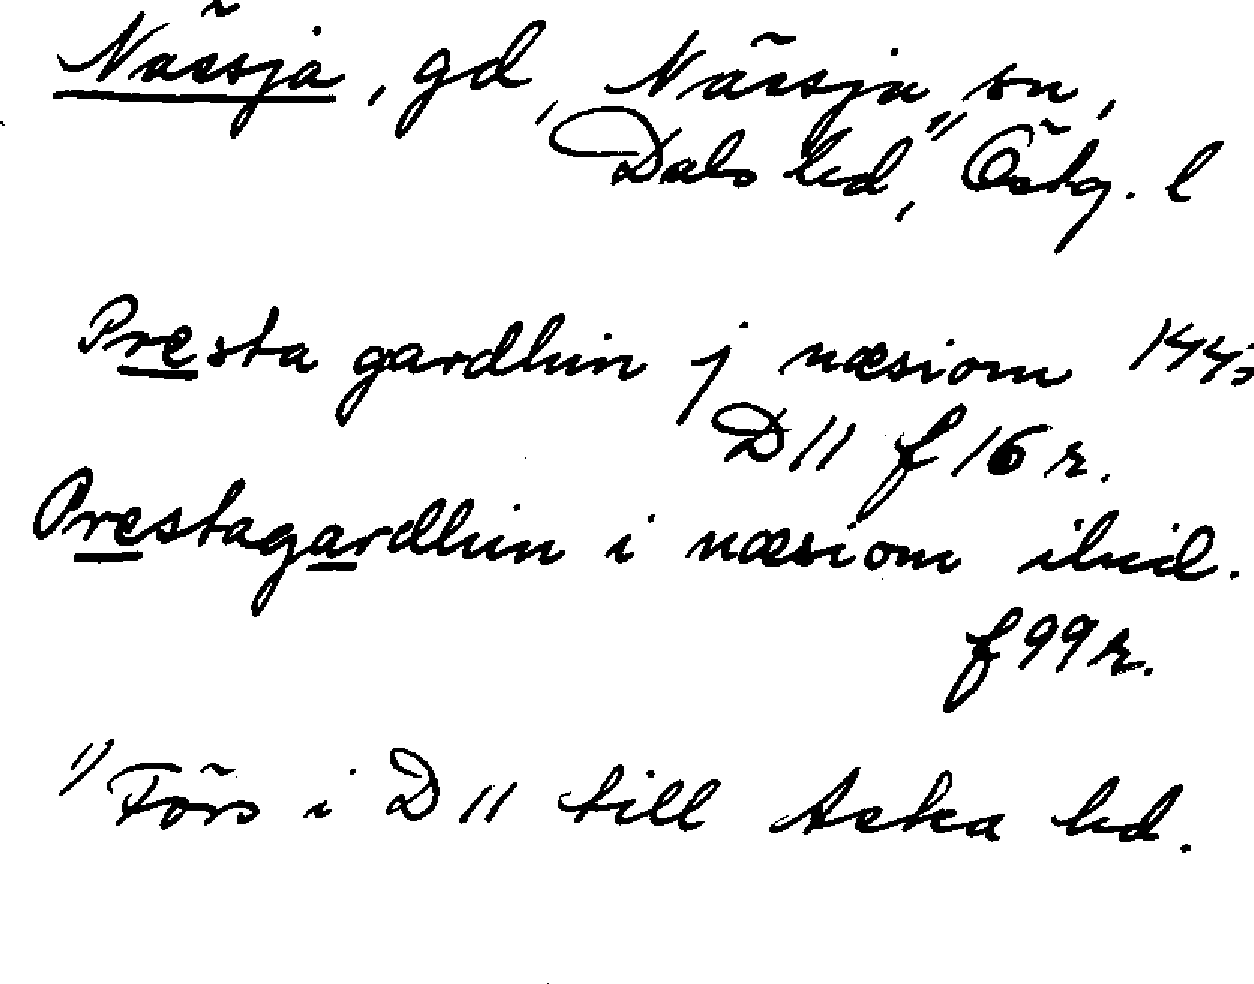 Nässja, gd, Nässja sn,
Dals hd,¹⁾ Östg. l
Presta gardhin j næsiom 1447
D 11 f 16 r.
Prestagardhin i næsiom ibid.
f 99 r.
¹⁾ Förs i D 11 till Aska hd.